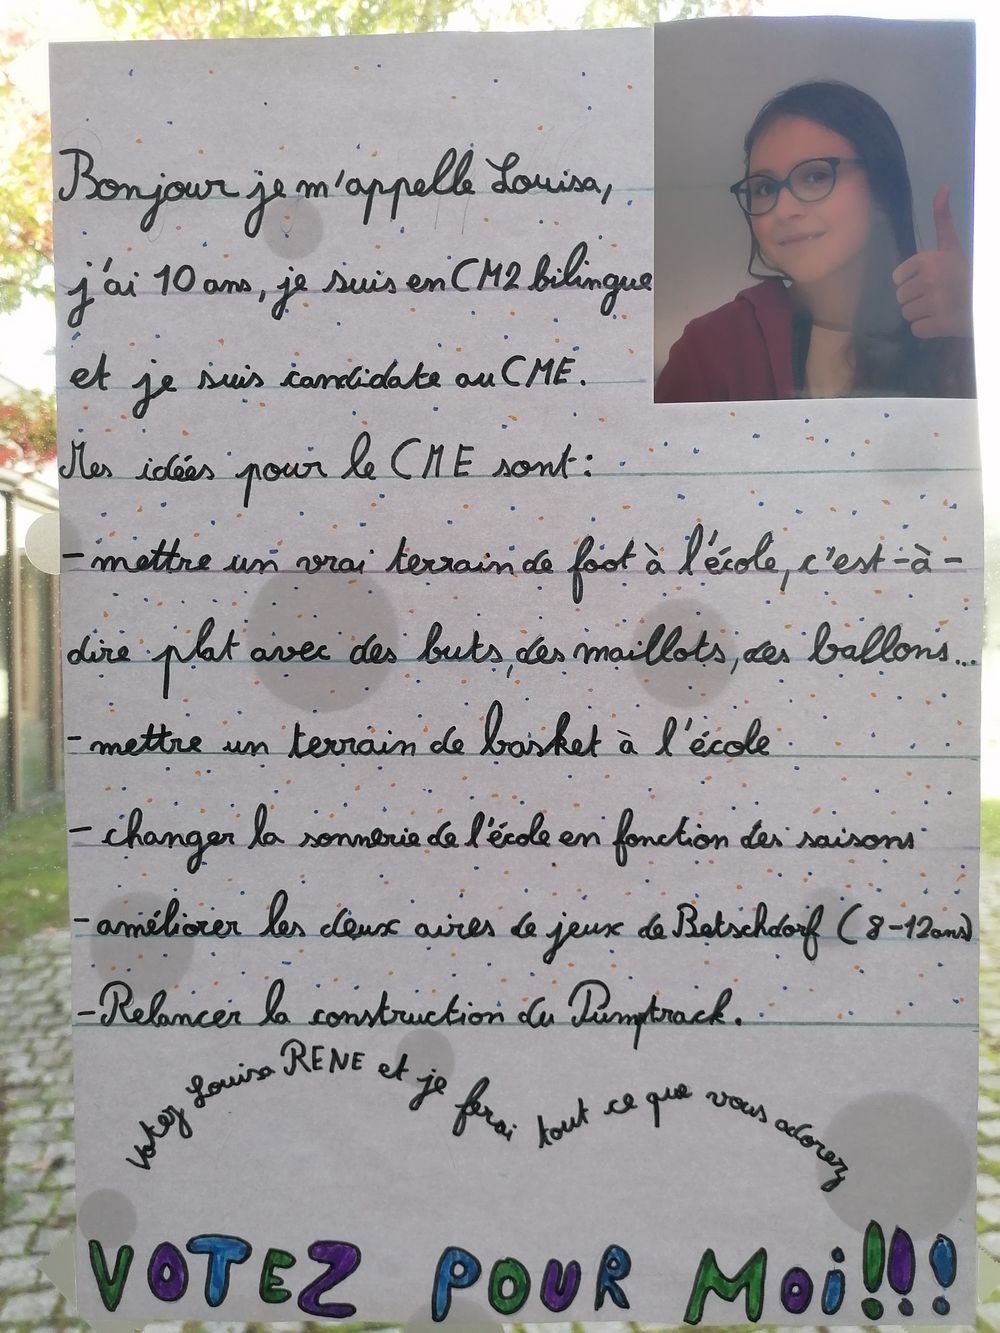 Bonjour je m'appelle Louisa,
j'ai 10 ans, je suis en CM2 bilingue
et je suis candidate au CME.
Mes idées pour le CME sont :
- mettre un vrai terrain de foot à l'école, c'est-à-
dire plat avec des buts, des maillots, des ballons...
- mettre un terrain de basket à l'école
- changer la sonnerie de l'école en fonction des saisons
- améliorer les deux aires de jeux de Betschdorf (8-12ans)
- Relancer la construction du Pumptrack.
Votez Louisa RENE et je ferai tout ce que vous adorez
VOTEZ POUR MOi!!!